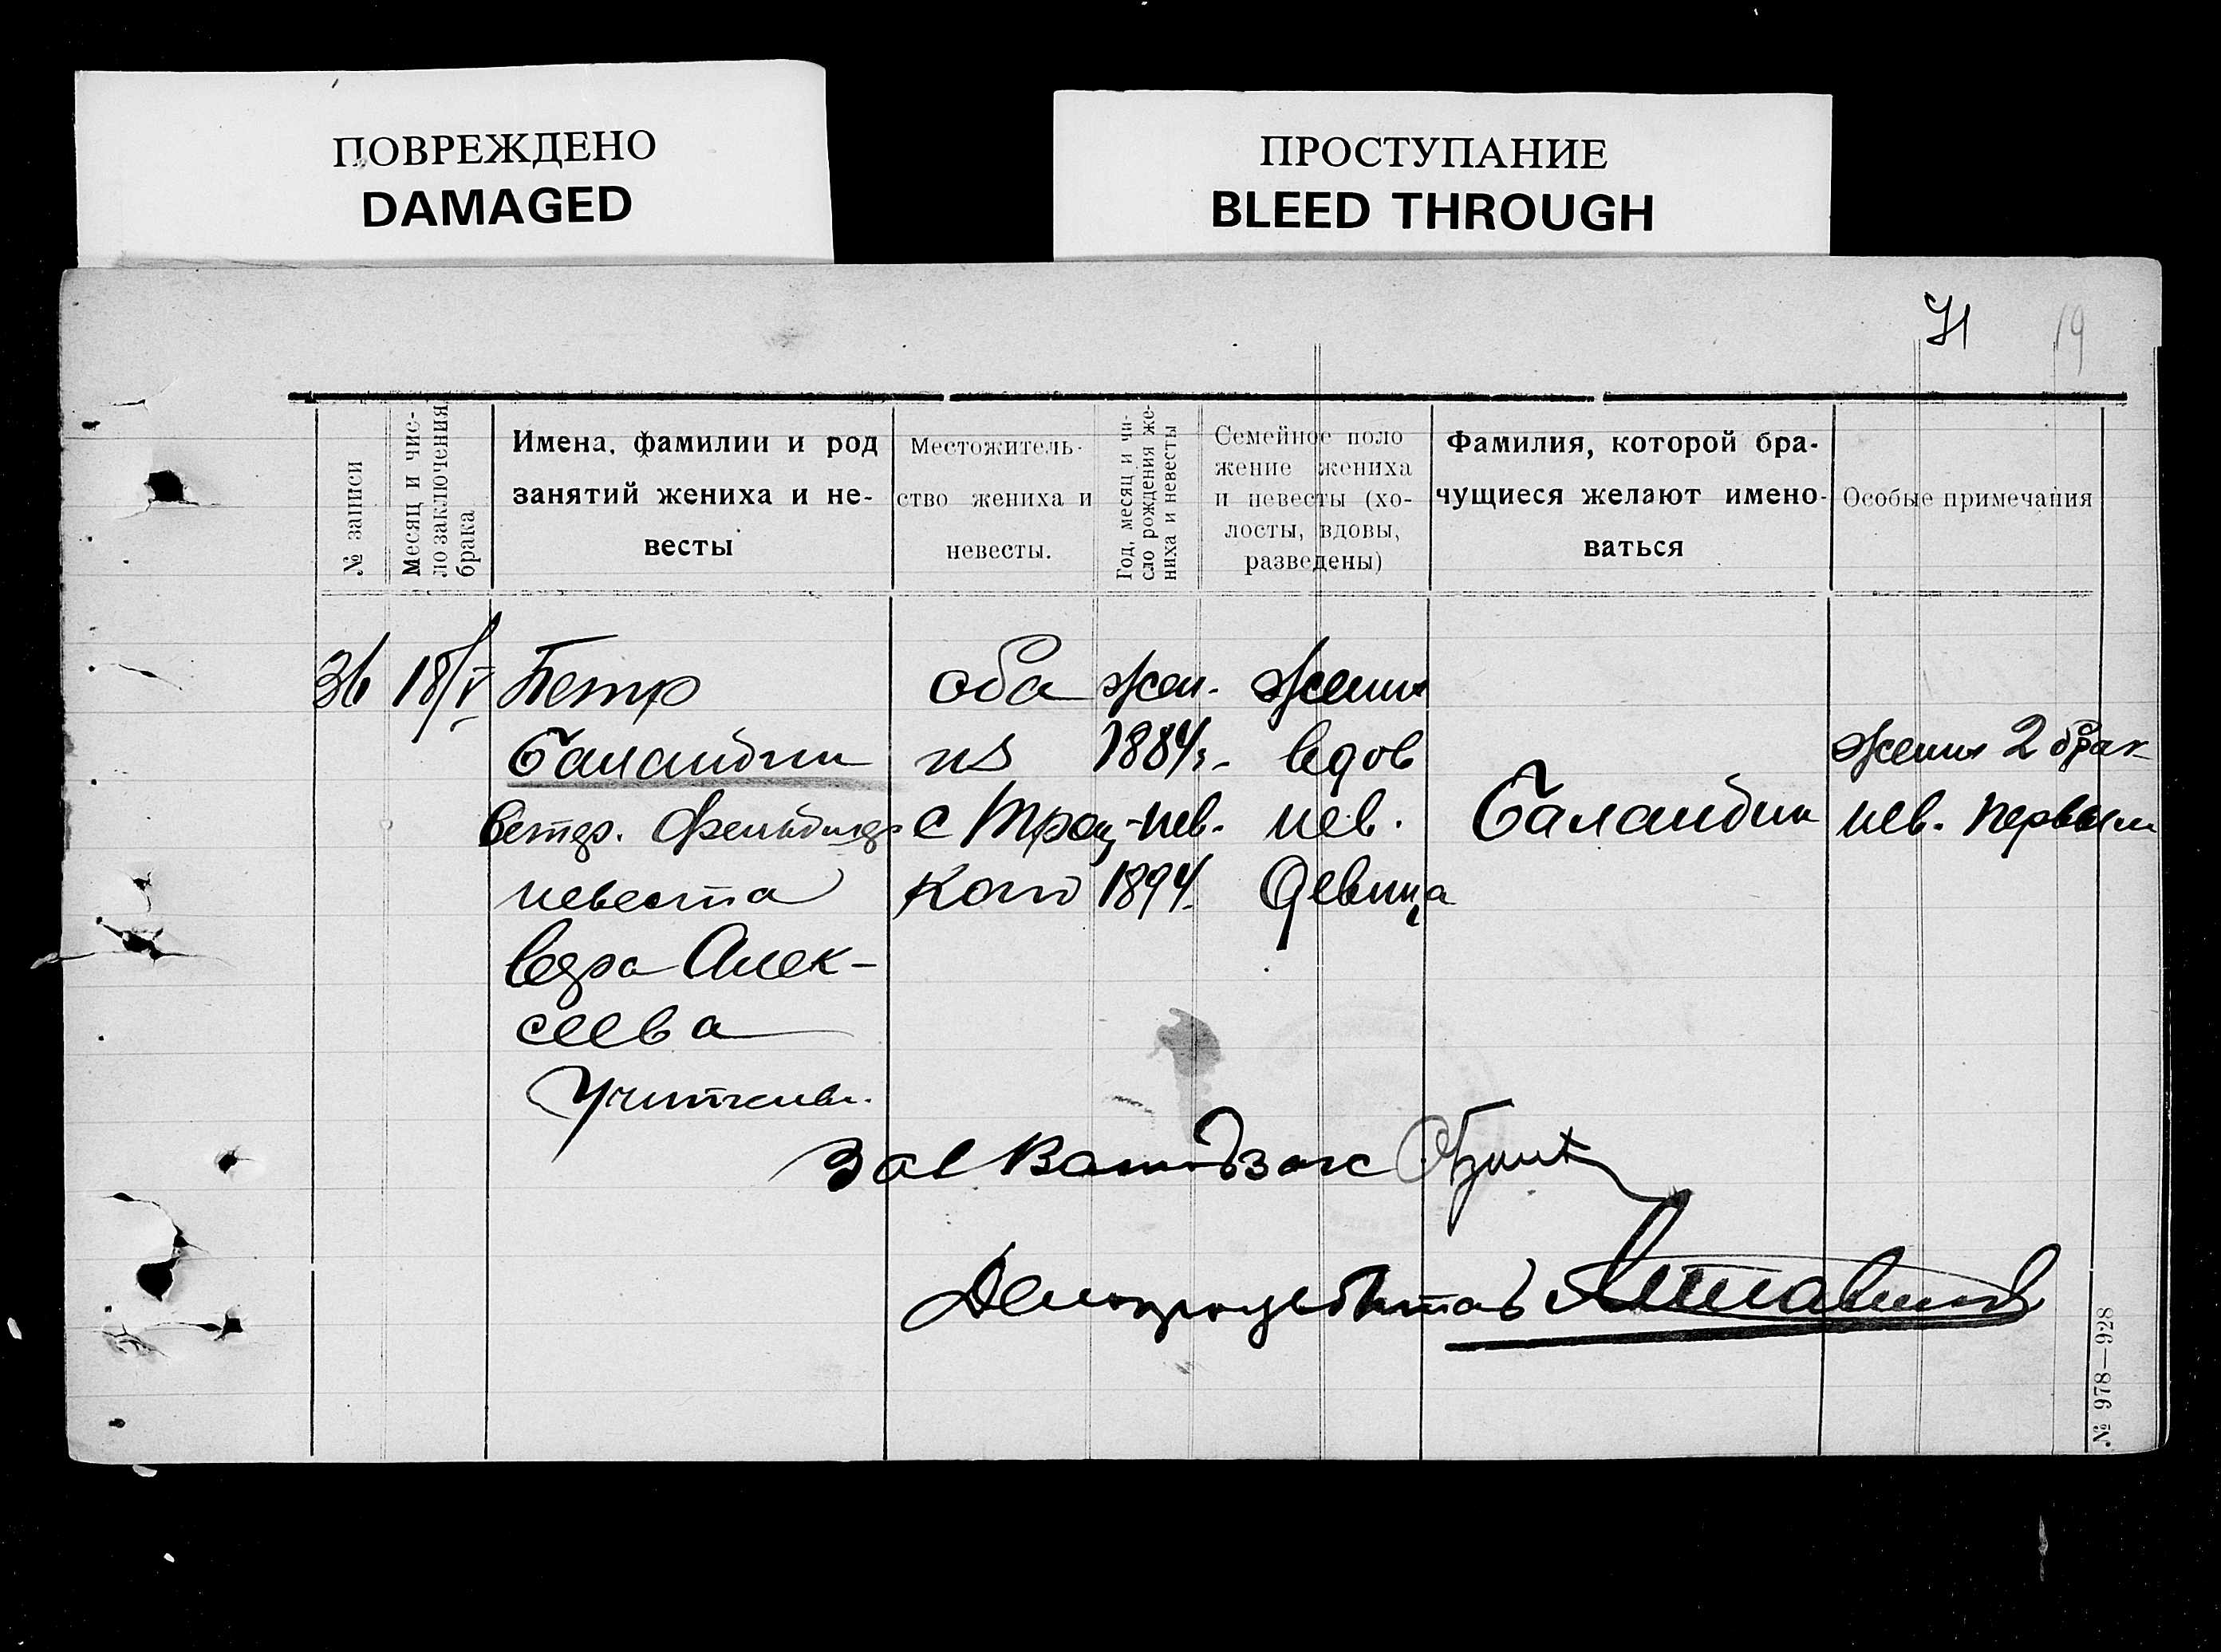 ПОВРЕЖДЕНО
DAMAGED
ПРОСТУПАНИЕ
BLEED THROUGH
71 19
№ записи
Месяц и чис-
ло заключения
брака
Имена, фамилии и род
занятий жениха и не-
весты
Местожитель-
ство жениха и
невесты.
Год, месяц и чи-
сло рождения же-
ниха и невесты
Семейное поло
жение жениха
и невесты (хо-
лосты, вдовы,
разведены)
Фамилия, которой бра-
чущиеся желают имено-
ваться
Особые примечания
36
18/V
Петр
Баландин
невеста
Вера Алек-
сеева
оба
из
с Троц-
кого
жен.
1884г.
нев.
1894.
жених
вдов
нев.
Девица
Баландин
жених 2 брак
нев. первым
Зав
№ 978—928